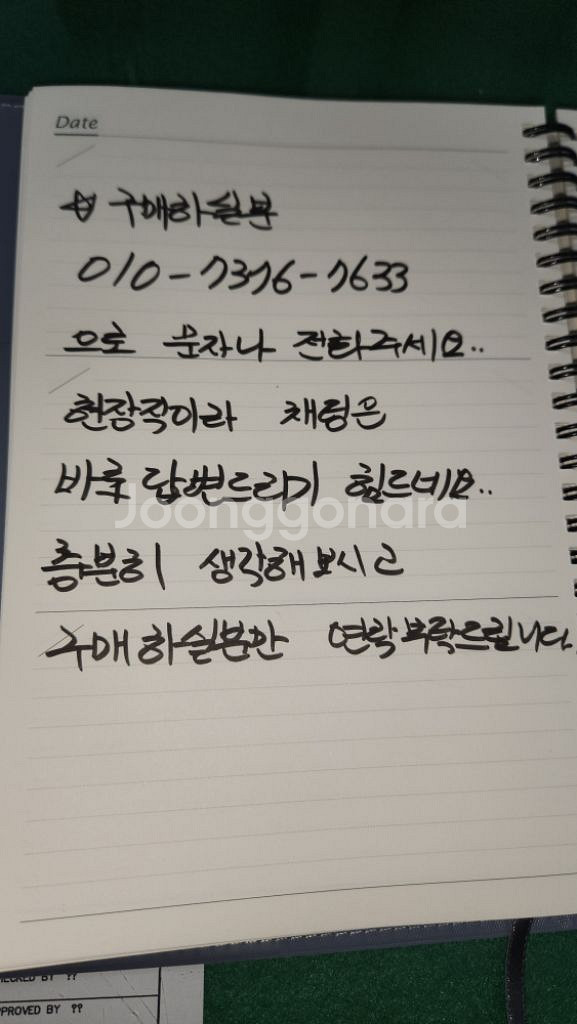 Date
☆ 구매하실분
010-7376-7633
으로 문자나 전화주세요..
현장직이라 채팅은
바루 답변드리기 힘드네요..
Joonggonara
충분히 생각해보시고
구매하실분만 연락부탁드립니다.
CHECKED BY ??
APPROVED BY ??